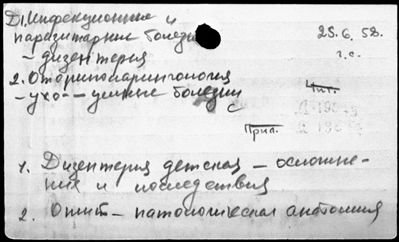 1. Инфекционные и
паразитарные болезни
25.6.58.
– дизентерия
г.с.
2. Оториноларингология
– ухо – ушные болезни
Чит.
Прил.
1. Дизентерия детская – осложне-
ния и последствия
2. Отит – патологическая анатомия